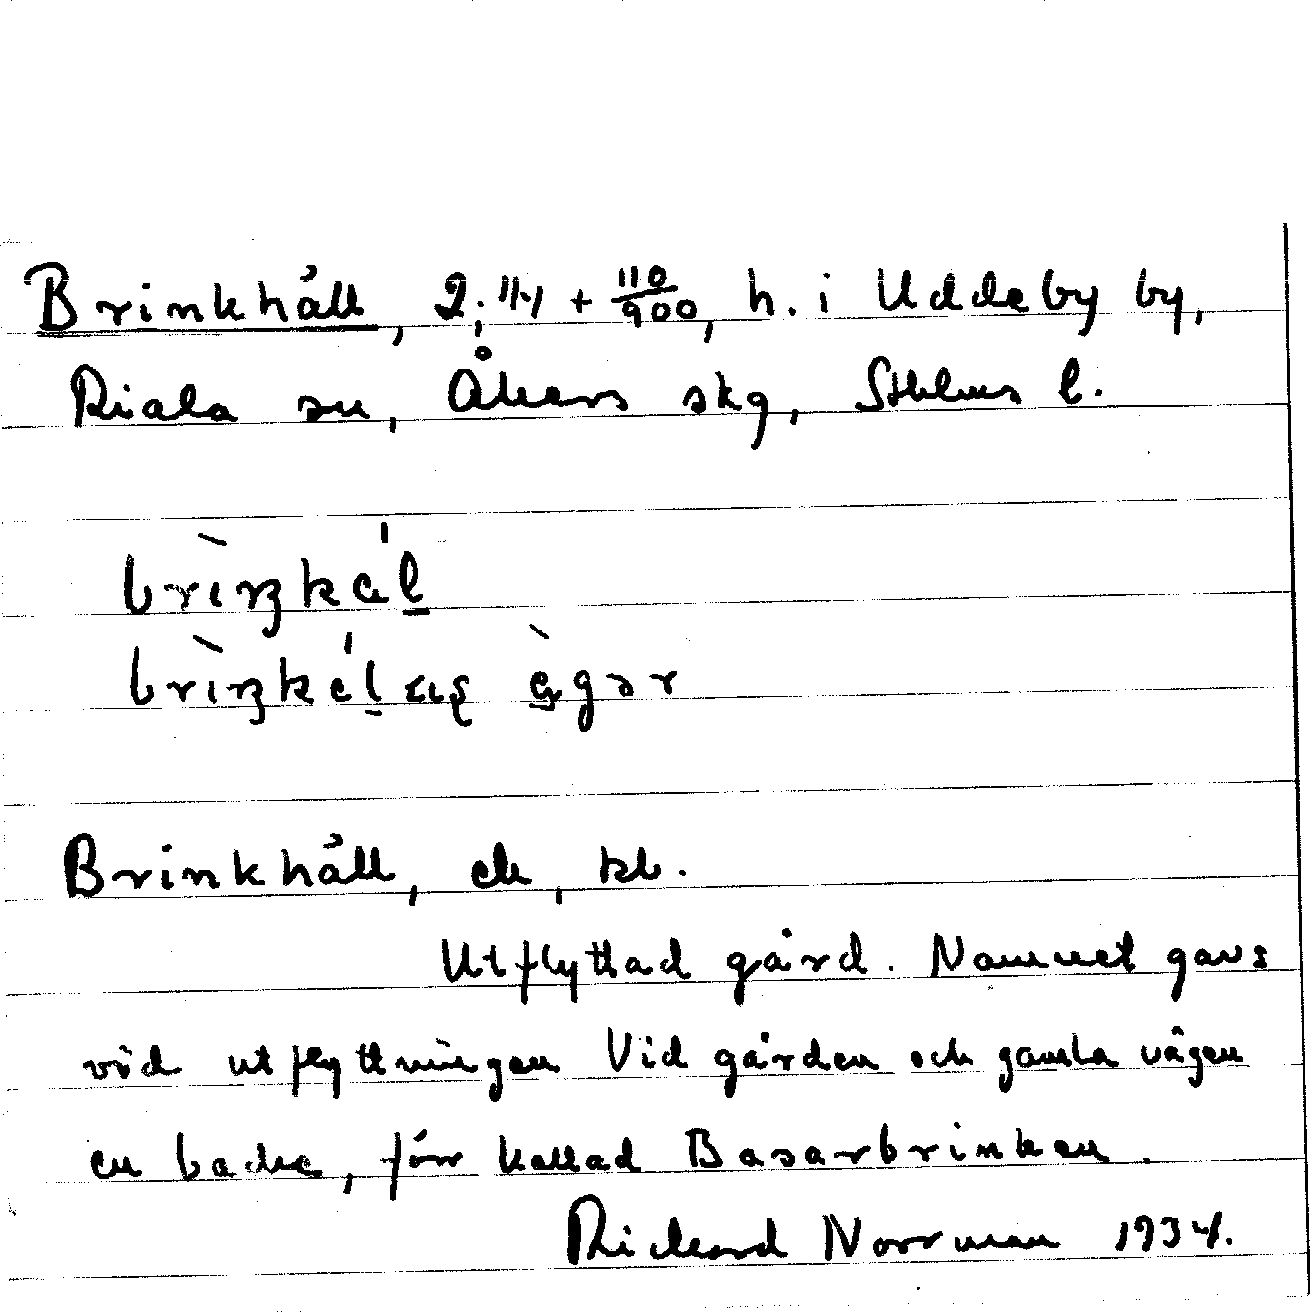 Brinkhåll, 2:14 + 110/900, h. i Uddeby by,
Riala sn, Åkers skg, Sthlms l.
Brinkhåll, ek, kb.
Utflyttad gård. Namnet gavs
vid utflyttningen Vid gården och gamla vägen
en backe, förr kallad Basarbrinken.
Rickard Norrman 1934.